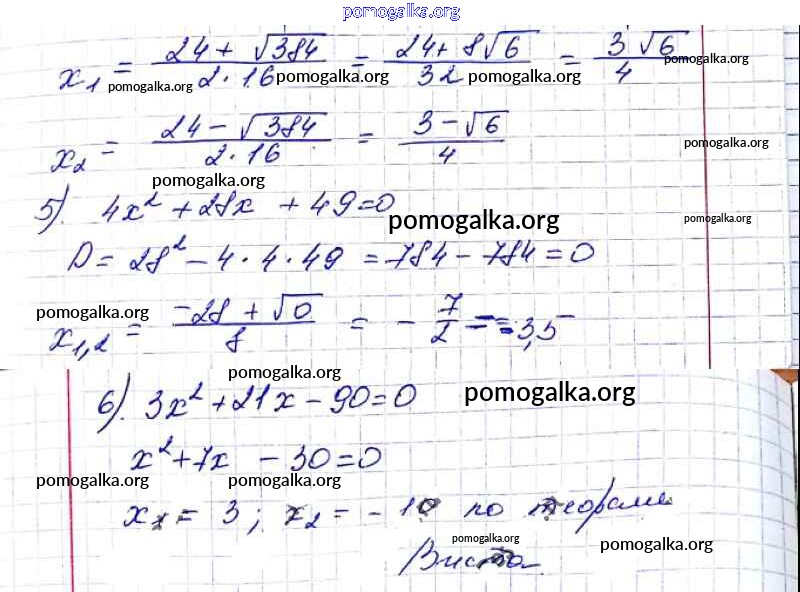 pomogalka.org
x₁ = (24 + √384)/(2·16) = (24 + 8√6)/32 = (3 √6)/4
pomogalka.org pomogalka.org pomogalka.org pomogalka.org
x₂ = (24 − √384)/(2·16) = (3 − √6)/4
pomogalka.org
pomogalka.org
5). 4x² + 28x + 49 = 0
pomogalka.org pomogalka.org
D = 28² − 4 · 4 · 49 = 784 − 784 = 0
pomogalka.org
x₁,₂ = (−28 + √0)/8 = − 7/2 = − 3,5
pomogalka.org
6). 3x² + 21x − 90 = 0
pomogalka.org
x² + 7x − 30 = 0
pomogalka.org pomogalka.org
x₁ = 3 ; x₂ = − 10 по теореме
pomogalka.org pomogalka.org
Виета